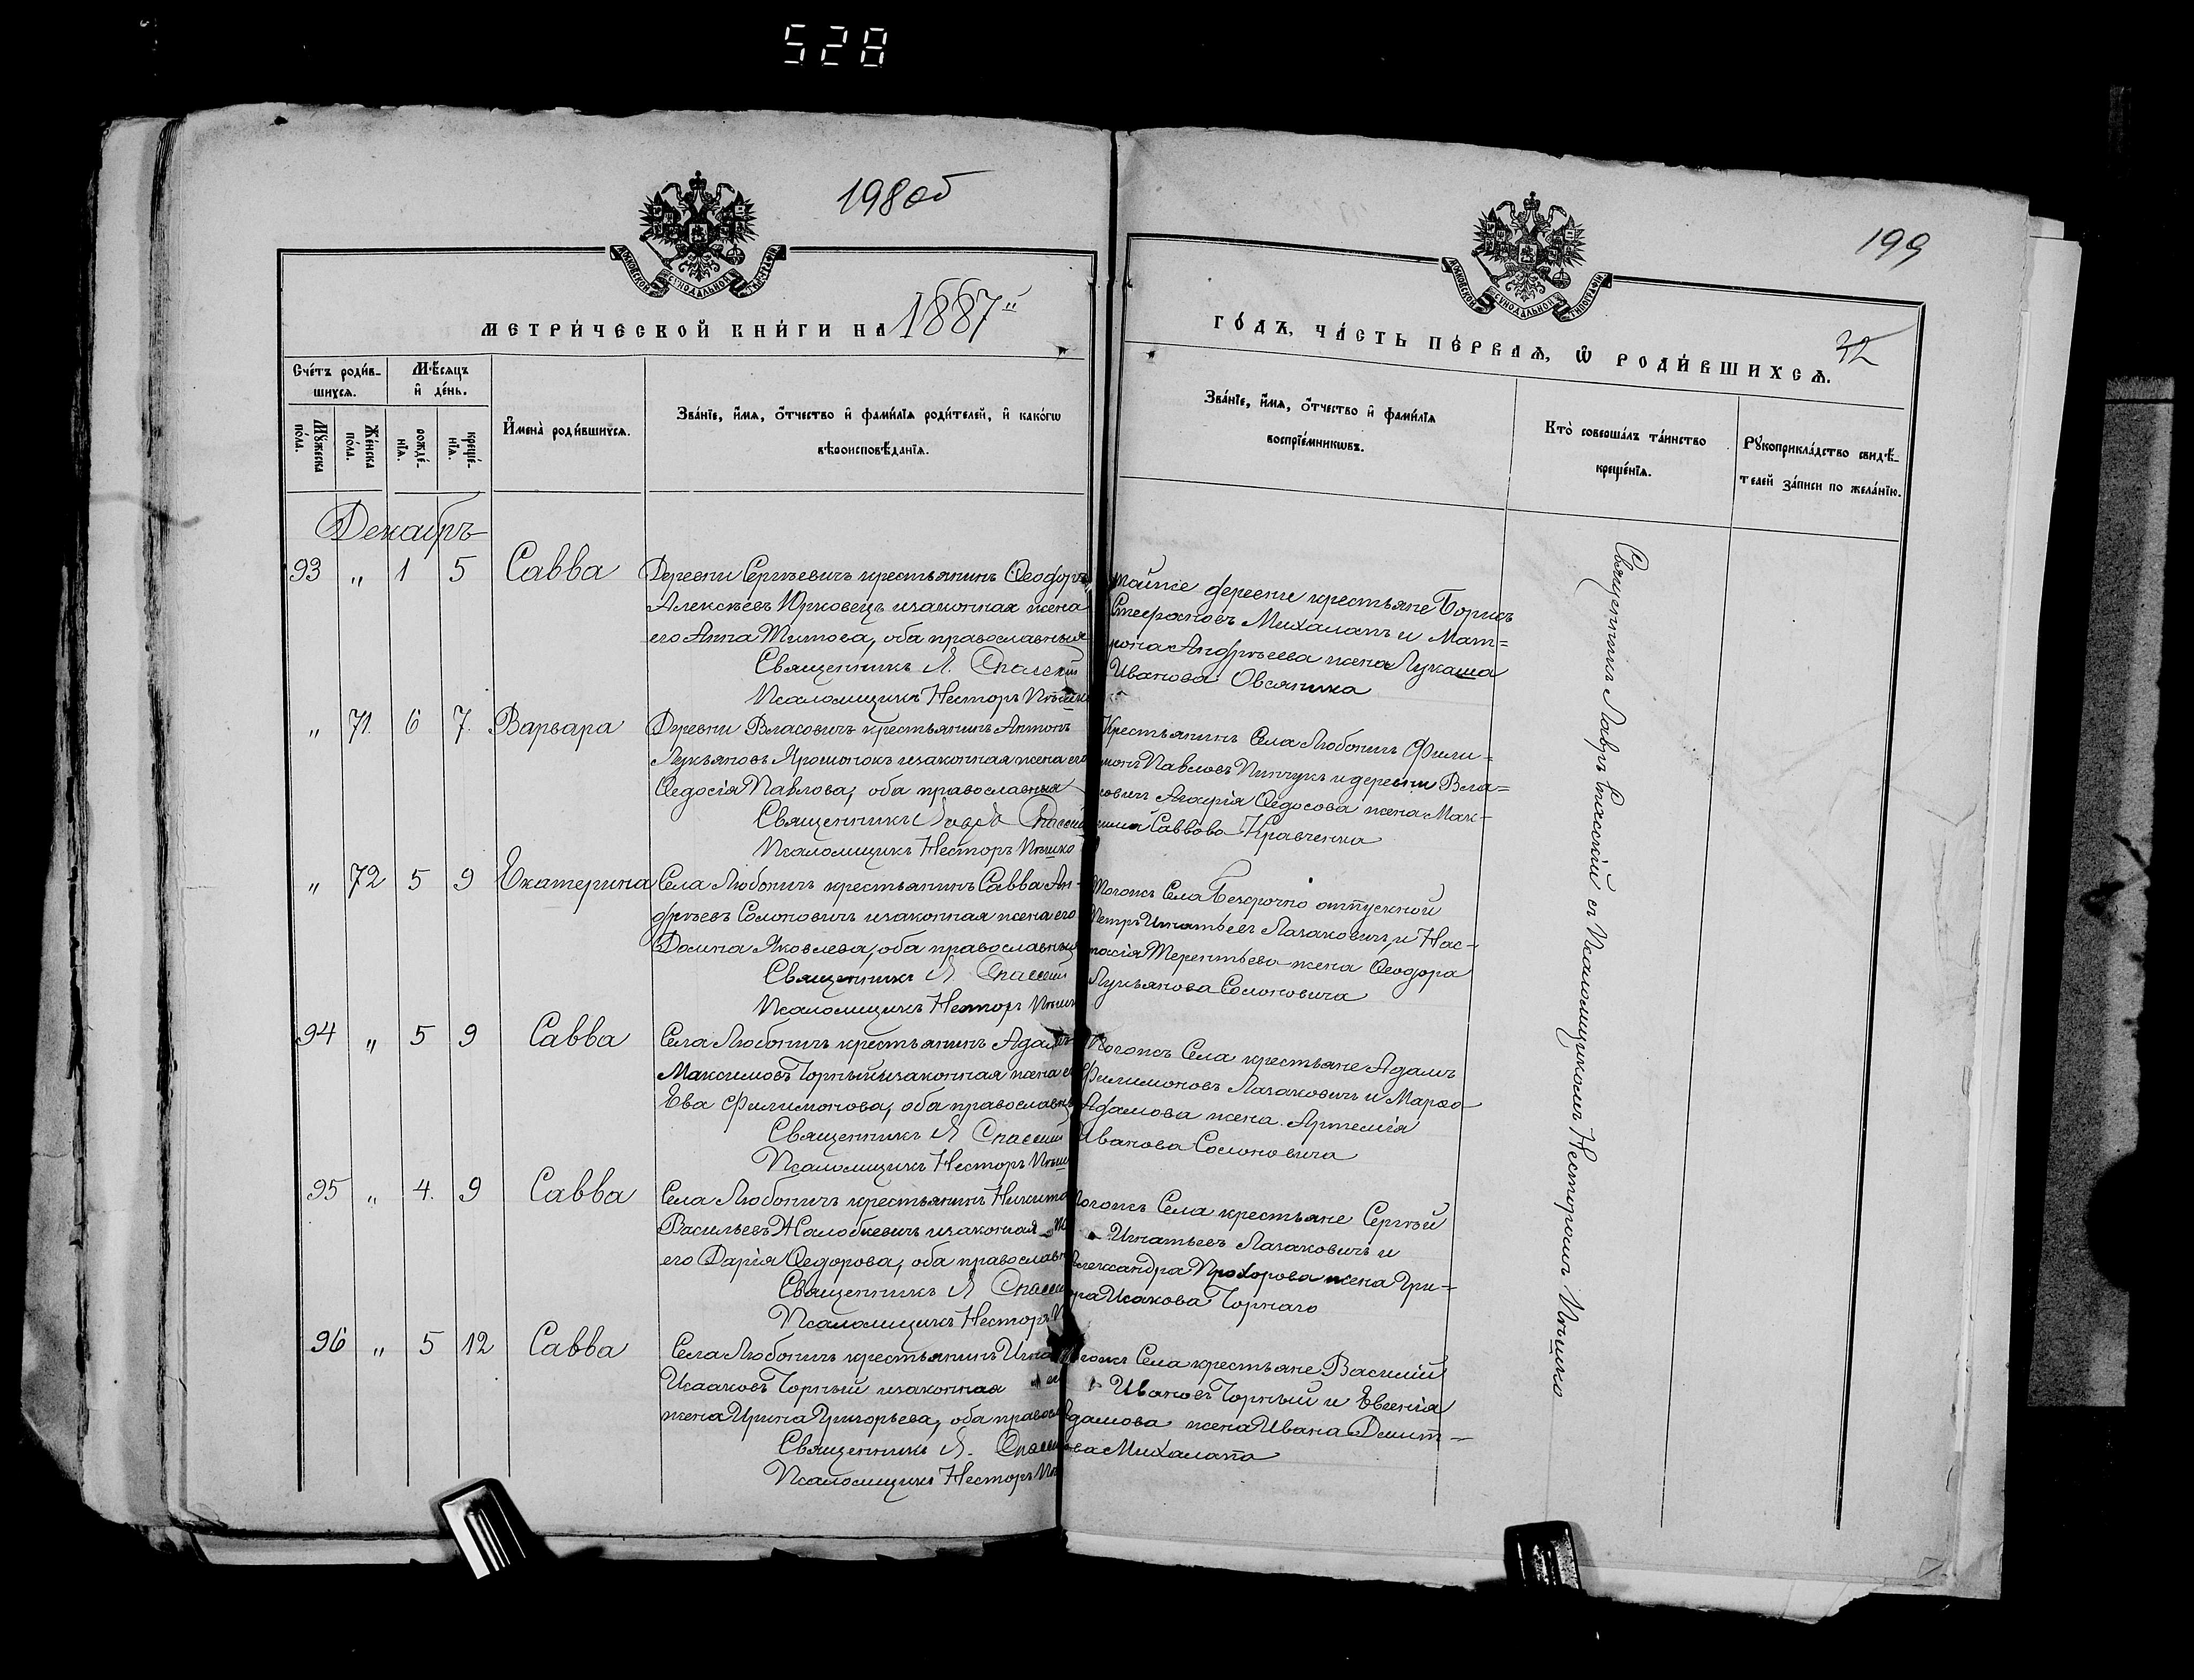 528
198 об
199
МОСКОВСКОЙ СѴНОДАЛЬНОЙ ТИПОГРАФІИ
МОСКОВСКОЙ СѴНОДАЛЬНОЙ ТИПОГРАФІИ
МЕТРИ́ЧЕСКОЙ КНИ́ГИ НА 1887й
ГО́ДЪ, ЧА́СТЬ ПЕ́РВАѦ, Ѿ РОДИ́ВШИХСѦ.
32
Сче́тъ роди́в-
шихся.
Мѣ́сяцъ
и҆ де́нь.
Мꙋ́жеска
по́ла.
Же́нска
по́ла.
рожде́-
нїѧ.
креще́-
нїѧ.
И҆мена̀ роди́вшихсѧ.
Зва́нїе, и҆́мѧ, ѻ҆́тчество и҆ фами́лїѧ роди́телей, и҆ како́гѡ
вѣроисповѣ́данїѧ.
Зва́нїе, и҆́мѧ, ѻ҆́тчество и҆ фами́лїѧ
воспрїе́мникѡвъ.
Кто̀ соверша́лъ та́инство
креще́нїѧ.
Рꙋкоприкла́дство свидѣ́-
телей за́писи по жела́нїю.
Декабрь
93 „ 1 5 Савва
Деревни Сергѣевичъ крестьянинъ Ѳеодоръ
Алексѣевъ Юрковецъ и законная жена
его Анна Титова, оба православныя
Священникъ Л. Спасскій
Псаломщикъ Несторъ
тойже деревни крестьяне Борисъ
Стефановъ Михалапъ и Мат=
рона Андрѣева жена Лукаша
Иванова Овсяника
„ 71. 6 7. Варвара
Деревни Власовичъ крестьянинъ Антонъ
Лукьяновъ Ярошонокъ и законная жена его
Ѳедосія Павлова, оба православныя
Священникъ Лавръ Спасскій
Псаломщикъ Несторъ Пѣшко
Крестьянинъ Села Любоничъ Фили=
монъ Павловъ Пинчукъ и деревни Вла=
совичъ Агафія Ѳедосова жена Мак=
сима Саввова Кравченка
„ 72 5 9 Екатерина
Села Любоничъ крестьянинъ Савва Ан-
дрѣевъ Солоновичъ и законная жена его
Домна Яковлева, оба православныя
Священникъ Л Спасскій
Псаломщикъ Несторъ
Тогожъ Села безсрочно отпускной
Петръ Игнатьевъ Лазаковичъ и Нас-
тасія Терентьева жена Ѳеодора
Лукьянова Солоновича
94 „ 5 9 Савва
Села Любоничъ крестьянинъ Адамъ
Максимовъ Чорный и законная жена его
Ева Филимонова, оба православныя
Священникъ Л Спасскій
Псаломщикъ Несторъ
Тогожъ Села крестьяне Адамъ
Филимоновъ Лазаковичъ и Марѳа
Адамова жена Артемія
Иванова Солоновича
95 „ 4. 9 Савва
Села Любоничъ крестьянинъ Никита
Васильевъ Жалобкевичъ и законная
его Дарія Ѳедорова, оба православн
Священникъ Л Спасскій
Псаломщикъ Несторъ
Тогожъ Села крестьяне Сергѣй
Игнатьевъ Лазаковичъ и
Александра Прохорова жена Гри=
гора Исакова Чорнаго
96 „ 5 12 Савва
Села Любоничъ крестьянинъ
Исааковъ Чорный и законная его
жена Ирина Григорьева, оба
Священникъ Л. Спасскій
Псаломщикъ Несторъ
Тогожъ Села крестьяне Василій
Ивановъ Чорный и Евгенія
Адамова жена Ивана Дмит-
Михалапа
Священникъ Лавръ Спасскій съ Псаломщикомъ Несторомъ Пѣшко